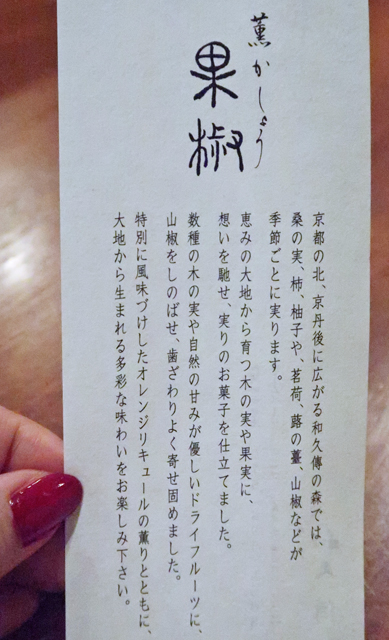 薫かしょう
果椒
京都の北、京丹後に広がる和久傳の森では、
桑の実、柿、柚子や、茗荷、蕗の薹、山椒などが
季節ごとに実ります。
恵みの大地から育つ木の実や果実に、
想いを馳せ、実りのお菓子を仕立てました。
数種の木の実や自然の甘みが優しいドライフルーツに、
山椒をしのばせ、歯ざわりよく寄せ固めました。
特別に風味づけしたオレンジリキュールの薫りとともに、
大地から生まれる多彩な味わいをお楽しみ下さい。